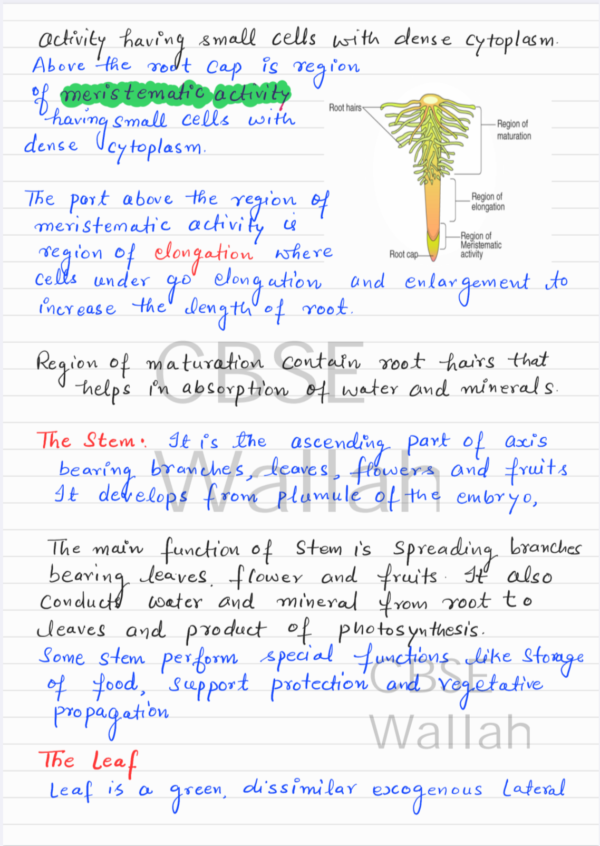 activity having small cells with dense cytoplasm.
Above the root cap is region
of meristematic activity
having small cells with
dense cytoplasm.
Root hairs
Region of
maturation
Region of
elongation
Region of
Meristematic
activity
Root cap
The part above the region of
meristematic activity is
region of elongation where
cells under go elongation and enlargement to
increase the length of root.
Region of maturation contain root hairs that
helps in absorption of water and minerals.
CBSE
The Stem: It is the ascending part of axis
bearing branches, leaves, flowers and fruits
Wallah
It develops from plumule of the embryo,
The main function of stem is spreading branches
bearing leaves, flower and fruits. It also
conducts water and mineral from root to
leaves and product of photosynthesis.
Some stem perform special functions like storage
of food, support protection and vegetative
CBSE
propagation
Wallah
The Leaf
Leaf is a green, dissimilar exogenous lateral